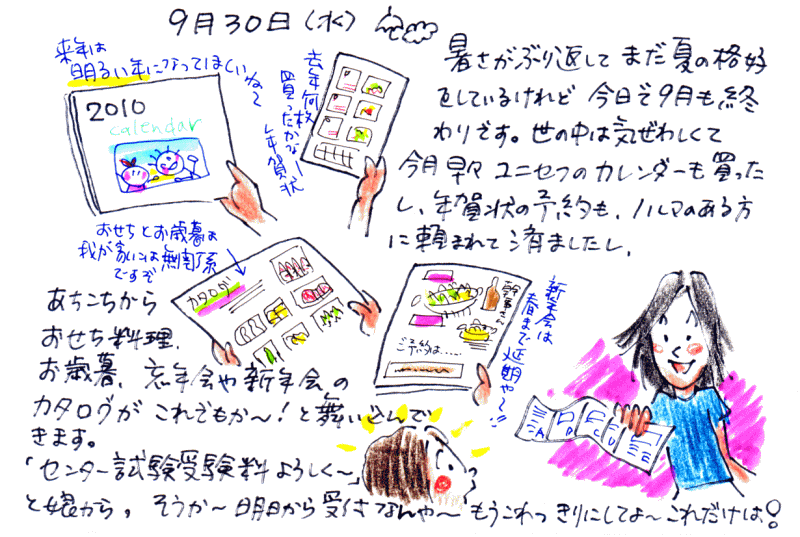 9月30日(水)
来年は
明るい年になってほしいね〜
2010
calendar
去年何枚
買ったかなー
年賀状
暑さがぶり返して まだ夏の格好
をしているけれど 今日で9月も終
わりです。世の中は気ぜわしくて
今月早々 ユニセフのカレンダーも買った
し、年賀状の予約も、ノルマのある方
に頼まれて 済ましたし、
おせちとお歳暮は
我が家には無関係
ですぞ
カタログ
幹事さん
ご予約は……
新年会は
春まで延期や〜!!
あちこちから
おせち料理、
お歳暮、忘年会や新年会の
カタログが これでもか〜!と舞い込んで
きます。
「センター試験受験料よろしく〜」
と娘から, そうか〜明日から受付なんや〜 もうこれっきりにしてよ〜これだけは!